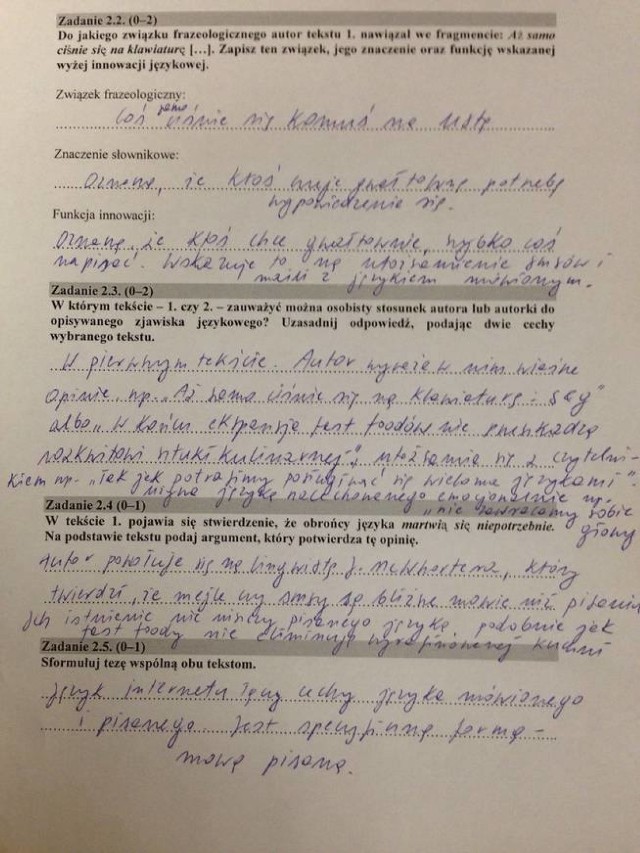 Zadanie 2.2. (0–2)
Do jakiego związku frazeologicznego autor tekstu 1. nawiązał we fragmencie: Aż samo
ciśnie się na klawiaturę [...]. Zapisz ten związek, jego znaczenie oraz funkcję wskazanej
wyżej innowacji językowej.
Związek frazeologiczny:
samo
Coś ciśnie się komuś na usta
Znaczenie słownikowe:
Oznacza, że ktoś czuje gwałtowną potrzebę
wypowiedzenia się.
Funkcja innowacji:
Oznacza, że ktoś chce gwałtownie, szybko coś
napisać. Wskazuje to na utożsamienie smsów i
maili z językiem mówionym.
Zadanie 2.3. (0–2)
W którym tekście – 1. czy 2. – zauważyć można osobisty stosunek autora lub autorki do
opisywanego zjawiska językowego? Uzasadnij odpowiedź, podając dwie cechy
wybranego tekstu.
W pierwszym tekście. Autor wyraża w nim własne
opinie, np. „Aż samo ciśnie się na klawiaturę:
albo „w końcu ekspansja fast foodów nie przeszkadza
rozkwitowi sztuki kulinarnej", utożsamia się z czytelni-
kiem np. „Tak jak potrafimy posługiwać się wieloma językami".
używa języka nacechowanego emocjonalnie np.
„nie zawracamy sobie
głowy
Zadanie 2.4 (0–1)
W tekście 1. pojawia się stwierdzenie, że obrońcy języka martwią się niepotrzebnie.
Na podstawie tekstu podaj argument, który potwierdza tę opinię.
Autor powołuje się na lingwistę J. McWhortera, który
twierdzi, że mejle czy smsy są bliższe mowie niż pisaniu
Ich istnienie nie niszczy pisanego języka, podobnie jak
fast foody nie eliminują wyrafinowanej kuchni
Zadanie 2.5. (0–1)
Sformułuj tezę wspólną obu tekstom.
Język internetu łączy cechy języka mówionego
i pisanego. Jest specyficzną formą –
mową pisaną.